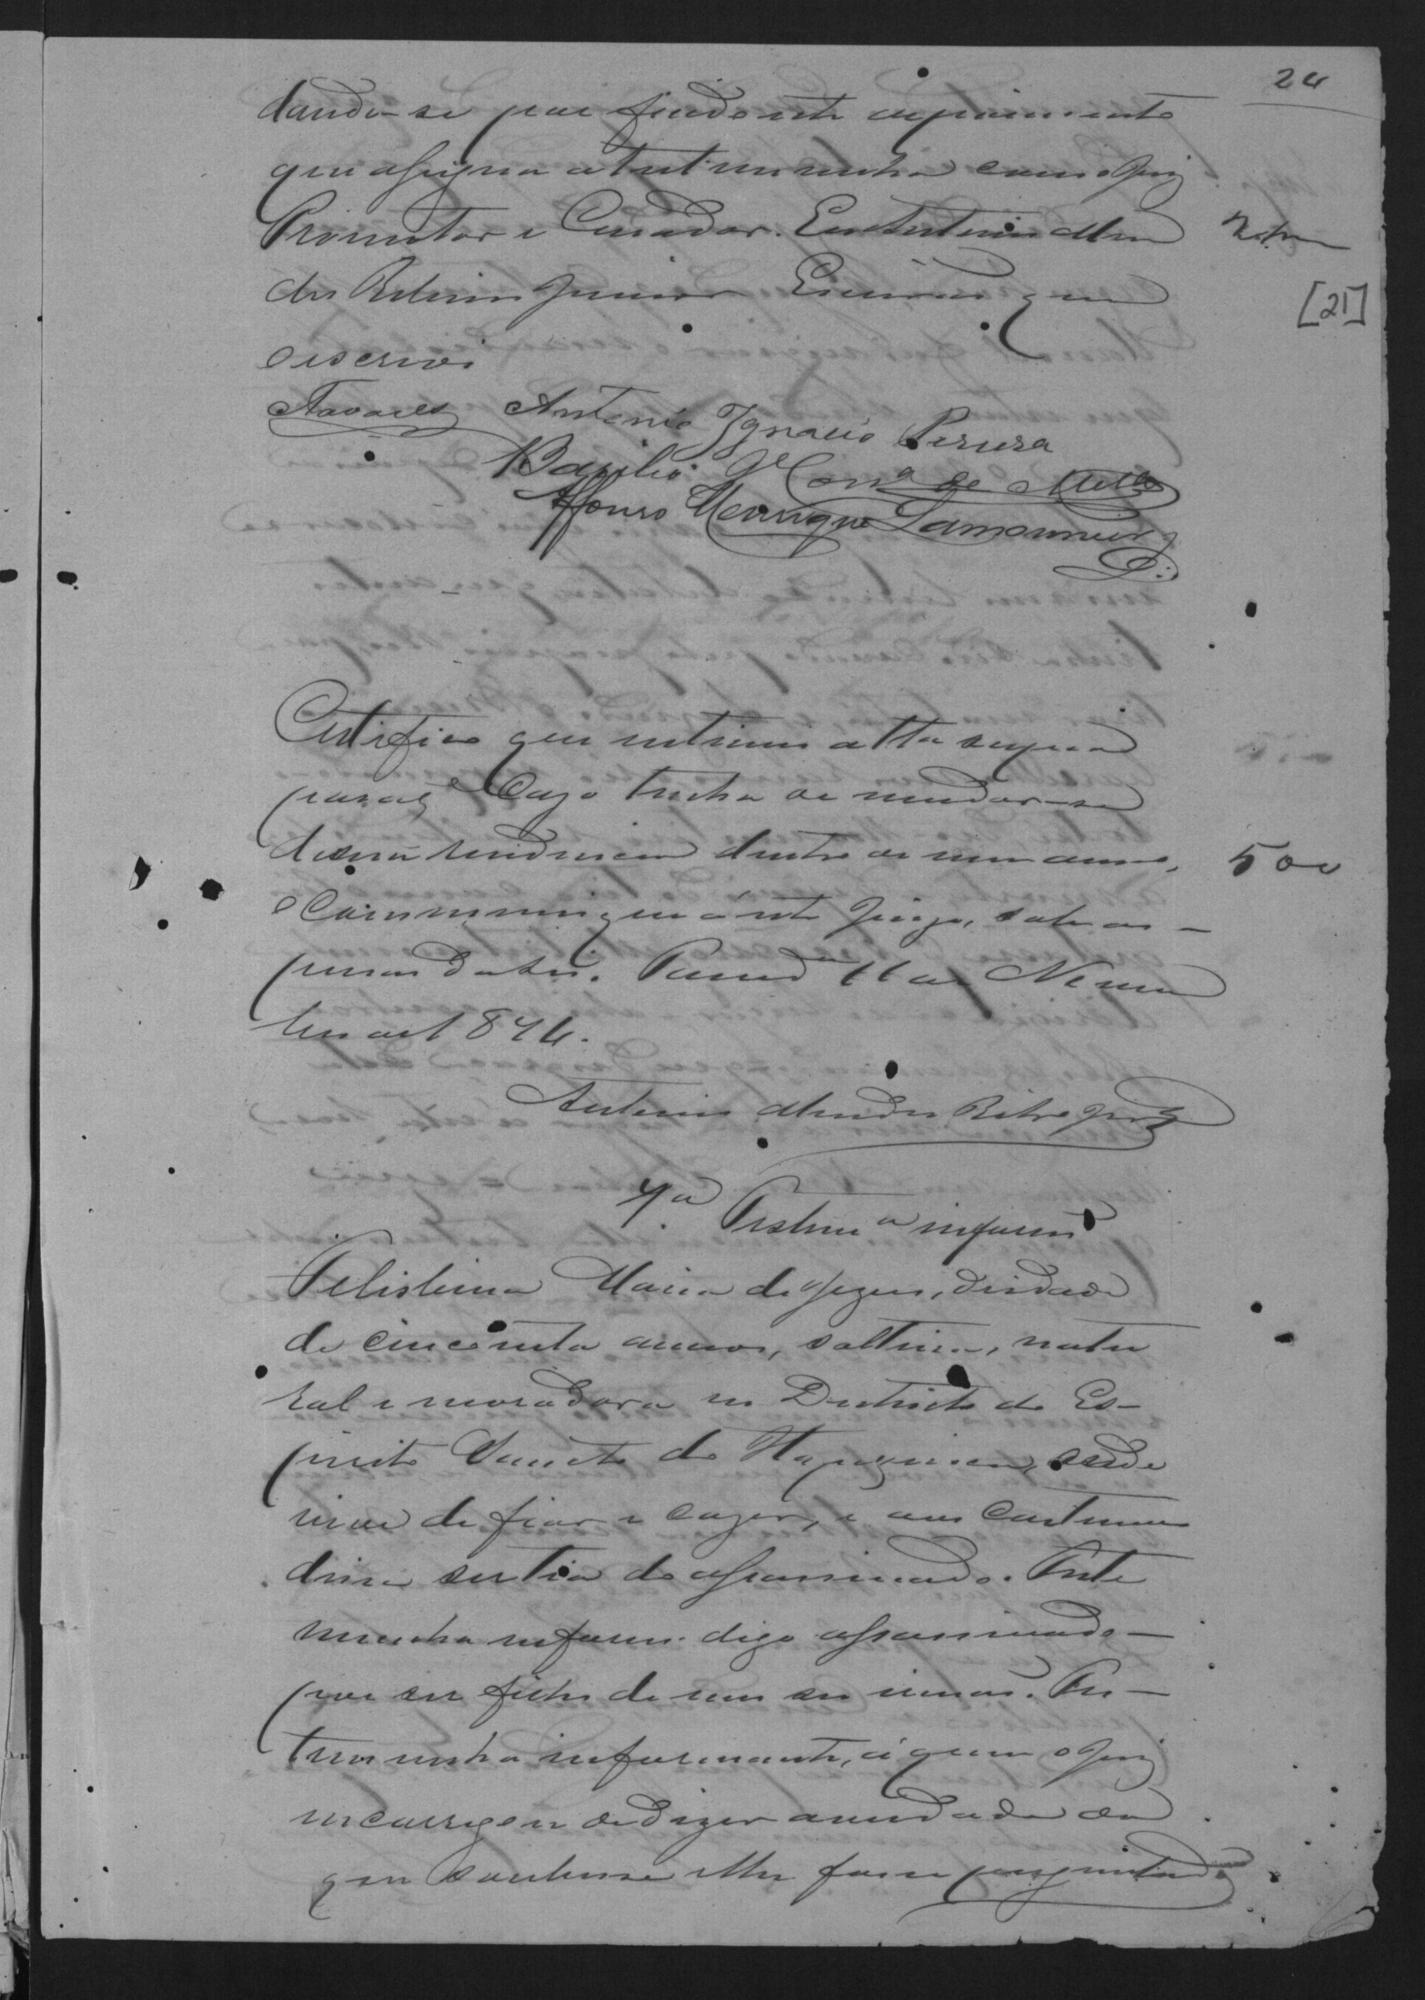 24
dando-se por findo este depoimento
que assigna a testimunha com o Juiz
Promotor e Curador. Eu Antonio Men
des Ribeiro Junior Escrivão que
[21]
o escrevi
Tavares Antonio Ignacio Pereira
Basilio de Mello
Affonso Henrique Lamounier
Certifico que intimei a testa supra
para Cazo tenha de mudar-se
de sua rezidencia dentro de um anno,
o Communique á este Juizo, sob as
penas da Lei. 11 de Novem
bro de 1874.
500
Antonio Mendes Ribro Jor
4ª Testemª inform
Felisbina Maria de Jezus, de idade
de cincoenta annos, solteira, natu
ral e moradora no Districto do Es-
pirito Sancto de Itapecerica, vive
de fiar e cozer, e aos costumes
disse ser tia do assassinado. Teste
munha inform. digo assassinado
por ser filho de um seu irmão. Tes-
temunha informante, á quem o Juiz
encarregou de dizer a verdade do
que soubesse e lhe fosse perguntado